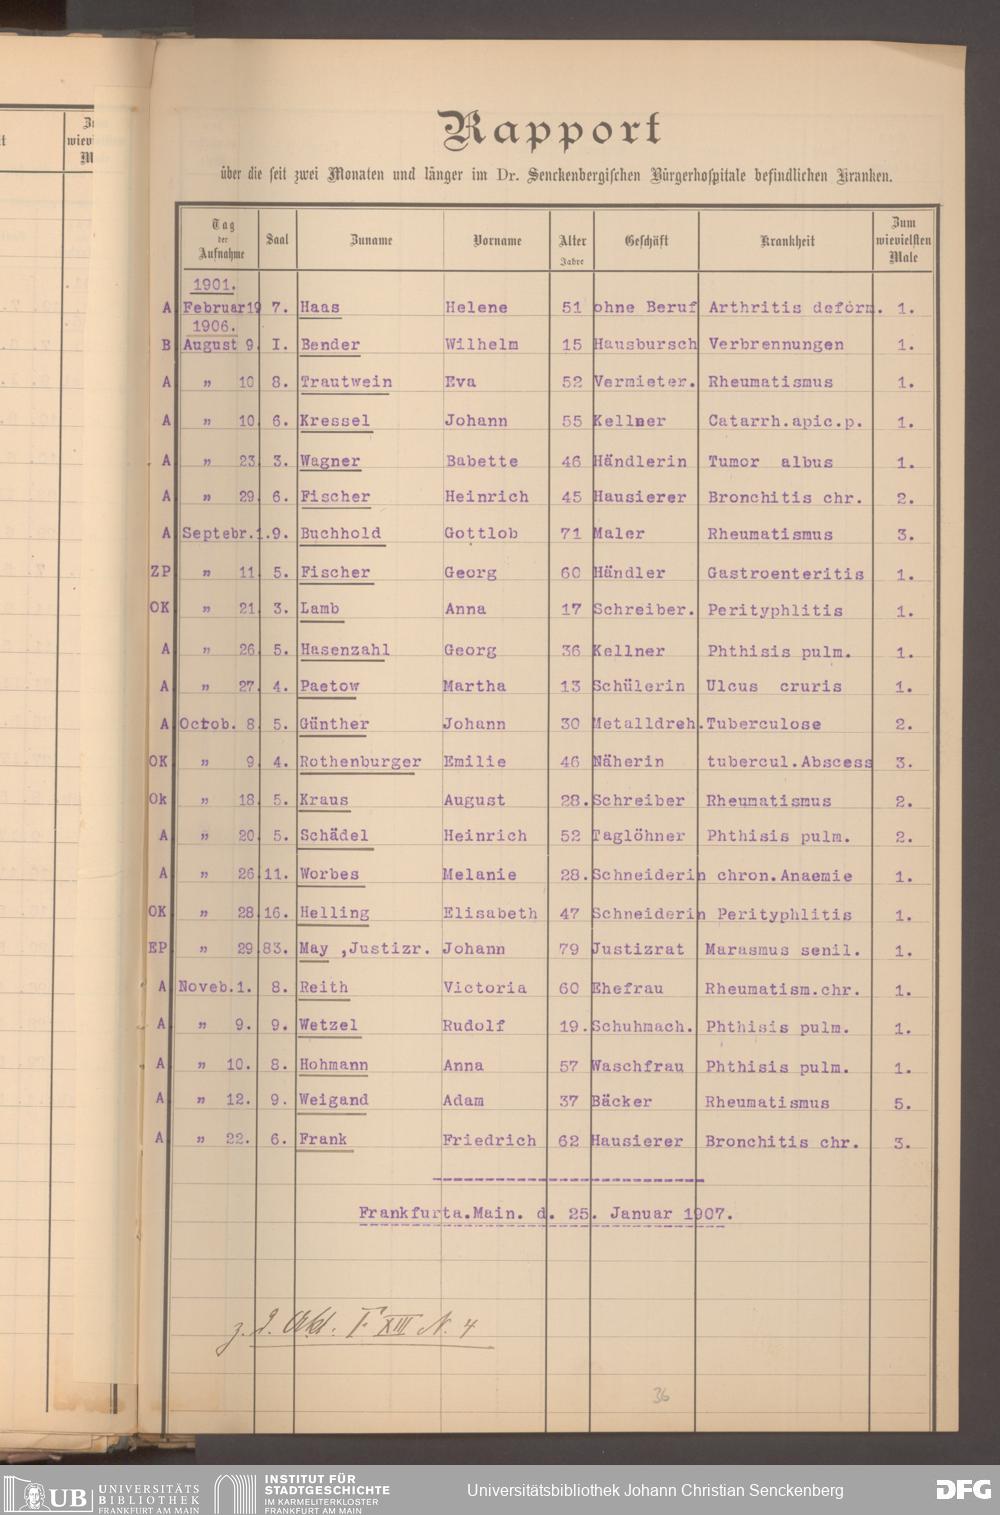 Rapport
über die seit zwei Monaten und länger im Dr. Senckenbergischen Bürgerhospitale befindlichen Kranken.
Tag der Aufnahme Saal Zuname Vorname Alter Jahre Geschäft Krankheit Zum wievielsten Male
1901.
A Februar 19 7. Haas Helene 51 ohne Beruf Arthritis deform. 1.
1906.
B August 9 I. Bender Wilhelm 15 Hausbursch Verbrennungen 1.
A " 10 8. Trautwein Eva 52 Vermieter. Rheumatismus 1.
A " 10 6. Kressel Johann 55 Kellner Catarrh.apic.p. 1.
A " 23 3. Wagner Babette 46 Händlerin Tumor albus 1.
A " 29 6. Fischer Heinrich 45 Hausierer Bronchitis chr. 2.
A Septebr.1.9. Buchhold Gottlob 71 Maler Rheumatismus 3.
ZP " 11 5. Fischer Georg 60 Händler Gastroenteritis 1.
OK " 21 3. Lamb Anna 17 Schreiber. Perityphlitis 1.
A " 26 5. Hasenzahl Georg 36 Kellner Phthisis pulm. 1.
A " 27 4. Paetow Martha 13 Schülerin Ulcus cruris 1.
A Octob. 8 5. Günther Johann 30 Metalldreh. Tuberculose 2.
OK " 9 4. Rothenburger Emilie 46 Näherin tubercul.Abscess 3.
Ok " 18 5. Kraus August 28. Schreiber Rheumatismus 2.
A " 20 5. Schädel Heinrich 52 Taglöhner Phthisis pulm. 2.
A " 26 11. Worbes Melanie 28. Schneiderin chron.Anaemie 1.
OK " 28 16. Helling Elisabeth 47 Schneiderin Perityphlitis 1.
EP " 29 83. May ,Justizr. Johann 79 Justizrat Marasmus senil. 1.
A Noveb.1. 8. Reith Victoria 60 Ehefrau Rheumatism.chr. 1.
A " 9. 9. Wetzel Rudolf 19. Schuhmach. Phthisis pulm. 1.
A " 10. 8. Hohmann Anna 57 Waschfrau Phthisis pulm. 1.
A " 12. 9. Weigand Adam 37 Bäcker Rheumatismus 5.
A " 22. 6. Frank Friedrich 62 Hausierer Bronchitis chr. 3.
Frankfurta.Main. d. 25. Januar 1907.
z. d. Akt. F XIII N. 4
36
UB UNIVERSITÄTS BIBLIOTHEK FRANKFURT AM MAIN
INSTITUT FÜR STADTGESCHICHTE IM KARMELITERKLOSTER FRANKFURT AM MAIN
Universitätsbibliothek Johann Christian Senckenberg
DFG